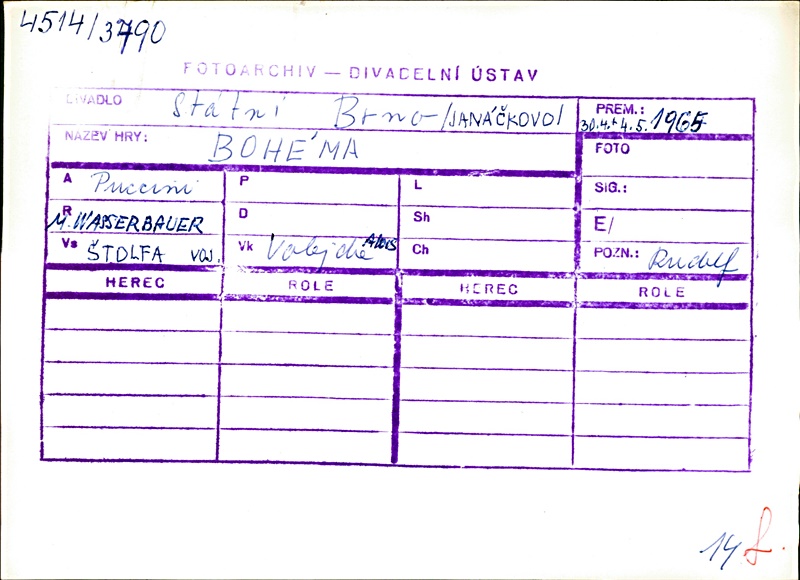 4514/3790
FOTOARCHIV — DIVADELNÍ ÚSTAV
DIVADLO Státní Brno /JANÁČKOVO/
PREM.: 30.4.+4.5. 1965
NÁZEV HRY: BOHÉMA
FOTO
A Puccini P L SIG.:
R M. WASSERBAUER D Sh E/
Vs ŠTOLFA VOJ. Vk Vobejda Alois Ch POZN.: Rudolf
HEREC ROLE HEREC ROLE
14